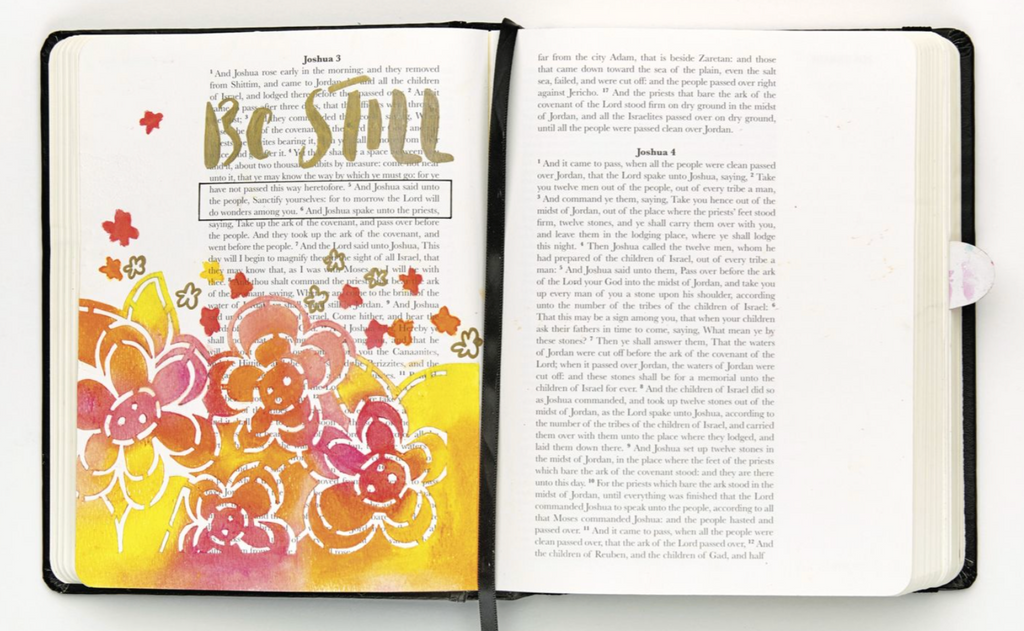 Joshua 3
Be STILL
1 And Joshua rose early in the morning; and they removed
from Shittim, and came to Jordan, and all the children
of Israel, and lodged there before they passed over. 2 And it
came to pass after three days, that the
they commanded the saying, W
of the covenant
bearing it,
go after it. 4 Yet a space between
and it, about two thousand cubits by measure: come not near
unto it, that ye may know the way by which ye must go: for ye
have not passed this way heretofore. 5 And Joshua said unto
the people, Sanctify yourselves: for to morrow the Lord will
do wonders among you. 6 And Joshua spake unto the priests,
saying, Take up the ark of the covenant, and pass over before
the people. And they took up the ark of the covenant, and
went before the people. 7 And the Lord said unto Joshua, This
day will I begin to magnify thee in the sight of all Israel, that
they may know that, as I was with Moses, will with
thee. thou shalt command the priests bear the ark
of the covenant, saying, When to the brink of the
water of still in Jordan. 9 And Joshua
Israel, Come hither, and hear the
Joshua Hereby ye
shall that he
you the Canaanites,
Perizzites, and the
far from the city Adam, that is beside Zaretan: and those
that came down toward the sea of the plain, even the salt
sea, failed, and were cut off: and the people passed over right
against Jericho. 17 And the priests that bare the ark of the
covenant of the Lord stood firm on dry ground in the midst
of Jordan, and all the Israelites passed over on dry ground,
until all the people were passed clean over Jordan.
Joshua 4
1 And it came to pass, when all the people were clean passed
over Jordan, that the Lord spake unto Joshua, saying, 2 Take
you twelve men out of the people, out of every tribe a man,
3 And command ye them, saying, Take you hence out of the
midst of Jordan, out of the place where the priests' feet stood
firm, twelve stones, and ye shall carry them over with you,
and leave them in the lodging place, where ye shall lodge
this night. 4 Then Joshua called the twelve men, whom he
had prepared of the children of Israel, out of every tribe a
man: 5 And Joshua said unto them, Pass over before the ark
of the Lord your God into the midst of Jordan, and take you
up every man of you a stone upon his shoulder, according
unto the number of the tribes of the children of Israel: 6
That this may be a sign among you, that when your children
ask their fathers in time to come, saying, What mean ye by
these stones? 7 Then ye shall answer them, That the waters
of Jordan were cut off before the ark of the covenant of the
Lord; when it passed over Jordan, the waters of Jordan were
cut off: and these stones shall be for a memorial unto the
children of Israel for ever. 8 And the children of Israel did so
as Joshua commanded, and took up twelve stones out of the
midst of Jordan, as the Lord spake unto Joshua, according to
the number of the tribes of the children of Israel, and carried
them over with them unto the place where they lodged, and
laid them down there. 9 And Joshua set up twelve stones in
the midst of Jordan, in the place where the feet of the priests
which bare the ark of the covenant stood: and they are there
unto this day. 10 For the priests which bare the ark stood in the
midst of Jordan, until everything was finished that the Lord
commanded Joshua to speak unto the people, according to all
that Moses commanded Joshua: and the people hasted and
passed over. 11 And it came to pass, when all the people were
clean passed over, that the ark of the Lord passed over, 12 And
the children of Reuben, and the children of Gad, and half